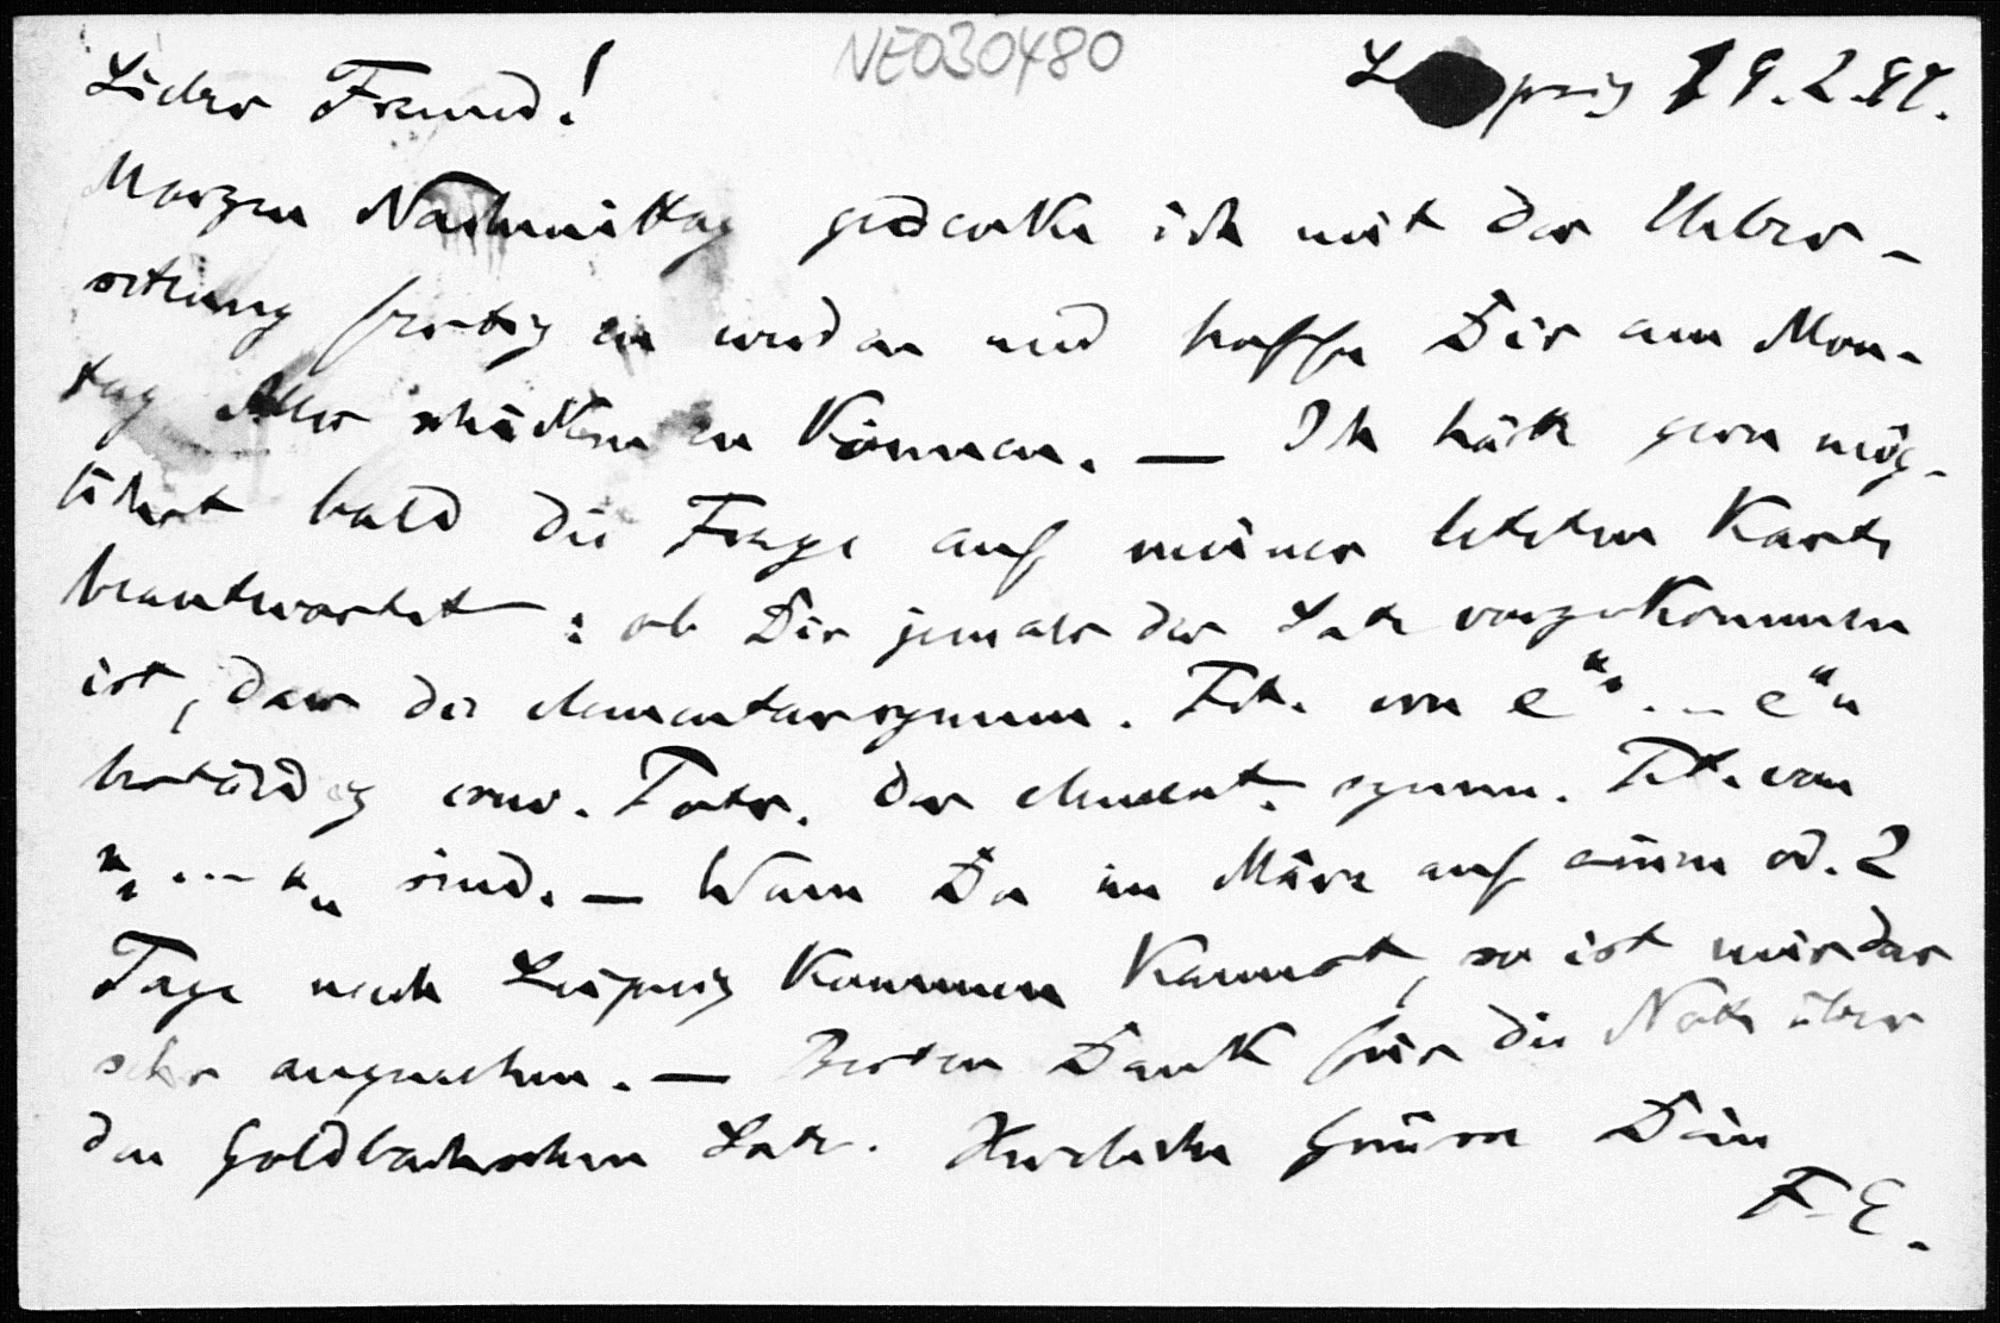 NE030480
Lieber Freund! Leipzig 19.2.97.
Morgen Nachmittag gedenke ich mit der Ueber-
setzung fertig zu werden und hoffe Dir am Mon-
tag Alles schicken zu können. — Ich hätte gern mög-
lichst bald die Frage auf meiner letzten Karte
beantwortet: ob Dir jemals der Satz vorgekommen
ist, dass die elementarsymm. Fkt. von e^x₁ ... e^xₙ
beständig conv. Potr. der element. symm. Fkt. von
x₁ ... xₙ sind. — Wenn Du im März auf einen od. 2
Tage nach Leipzig kommen kannst, so ist mir das
sehr angenehm. — Besten Dank für die Notiz über
den Goldbachschen Satz. Herzliche Grüsse Dein
F. E.